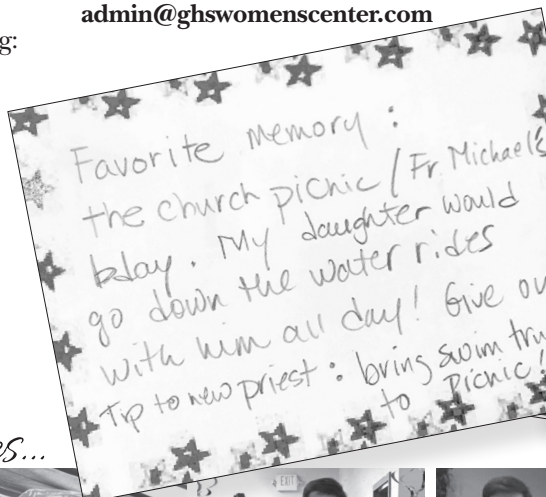 admin@ghswomenscenter.com
g:
Favorite memory :
the church picnic / Fr Michael's
bday. My daughter would
go down the water rides
with him all day! Give our
Tip to new priest : bring swim
to picnic!
es...
EXIT